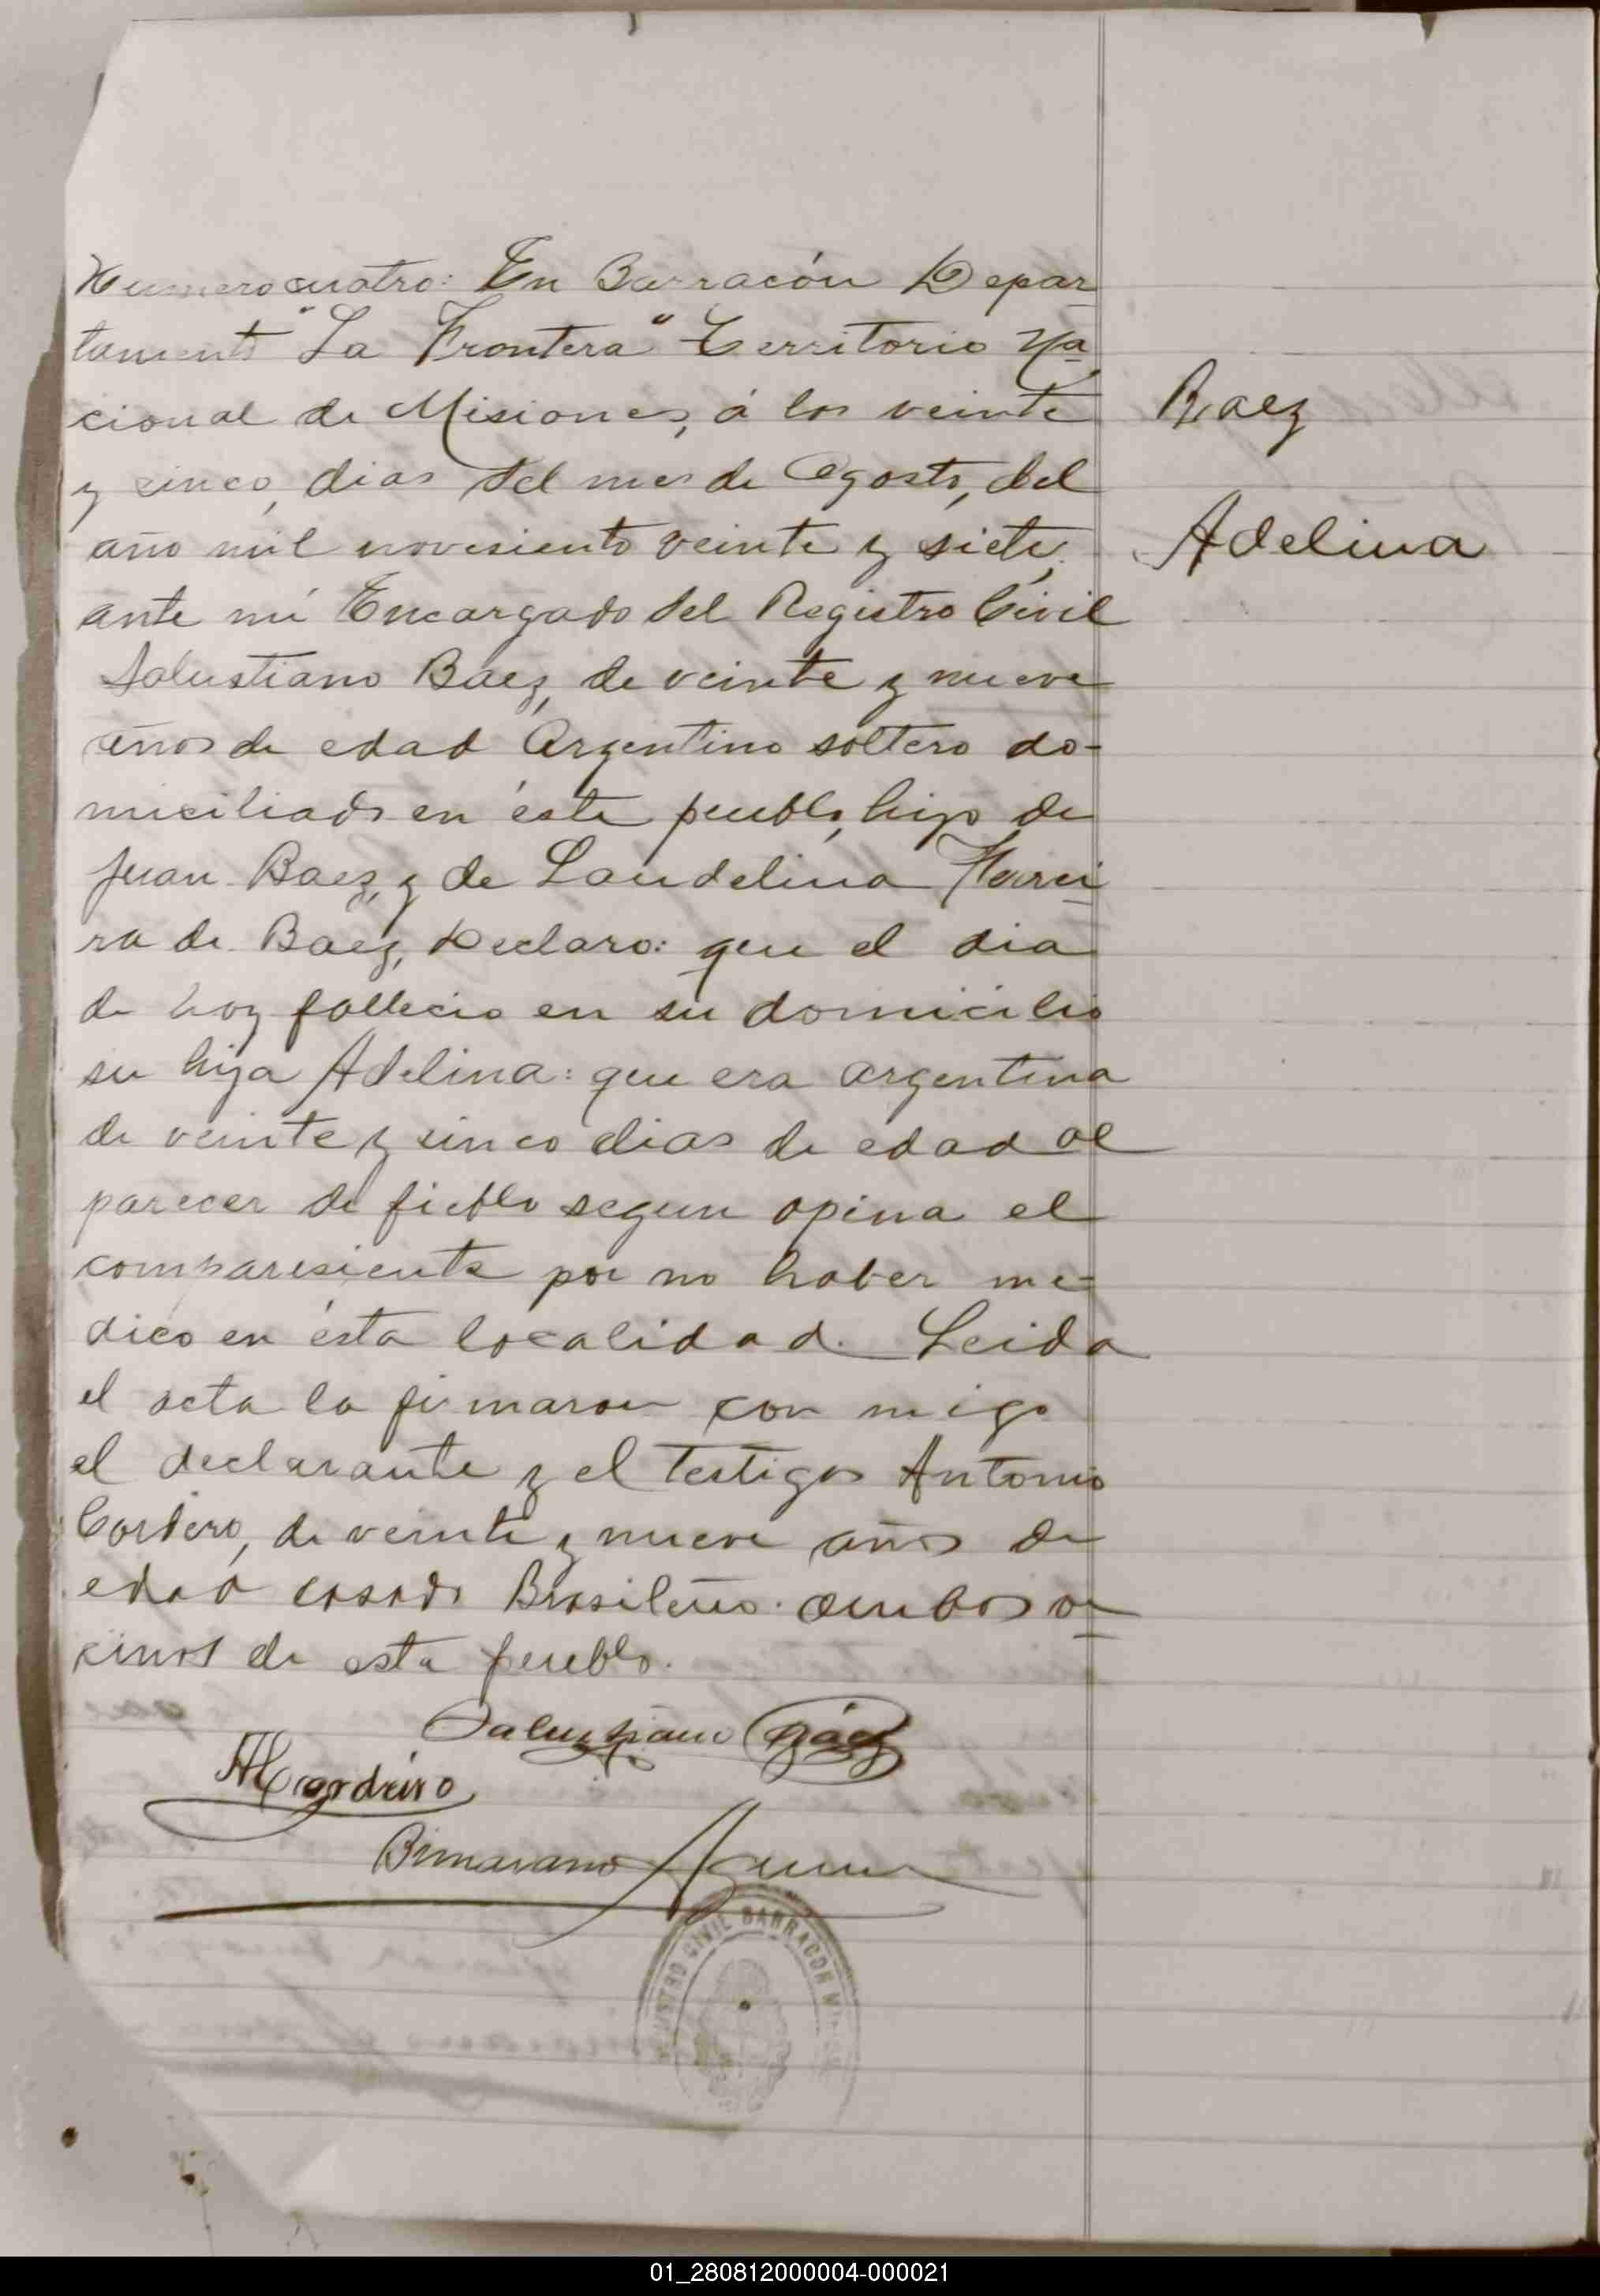 Numero cuatro: En Barracón Depar-
tamento "La Frontera" Territorio Na-
cional de Misiones, á los veinte
y cinco, dias del mes de Agosto, del
año mil novesiento veinte y siete,
ante mí Encargado del Registro Civil
Salustiano Baez, de veinte y nueve
años de edad Argentino soltero do-
miciliado en éste pueblo, hijo de
Juan Baez, y de Laudelina
ra de Baez, Declaro: que el dia
de hoy fallecio en su domicilio
su hija Adelina: que era argentina
de veinte y cinco dias de edad al
parecer de segun opina el
comparesiente por no haber me-
dico en ésta localidad. Leida
el acta la firmaron con migo
el declarante y el testigos Antonio
Cordero, de veinte y nueve años de
edad casado Brasileño. ambos ve-
cinos de este pueblo.
Baez
Adelina
Salustiano Báez
Cordeiro
REGISTRO CIVIL BARRACON
01_280812000004-000021